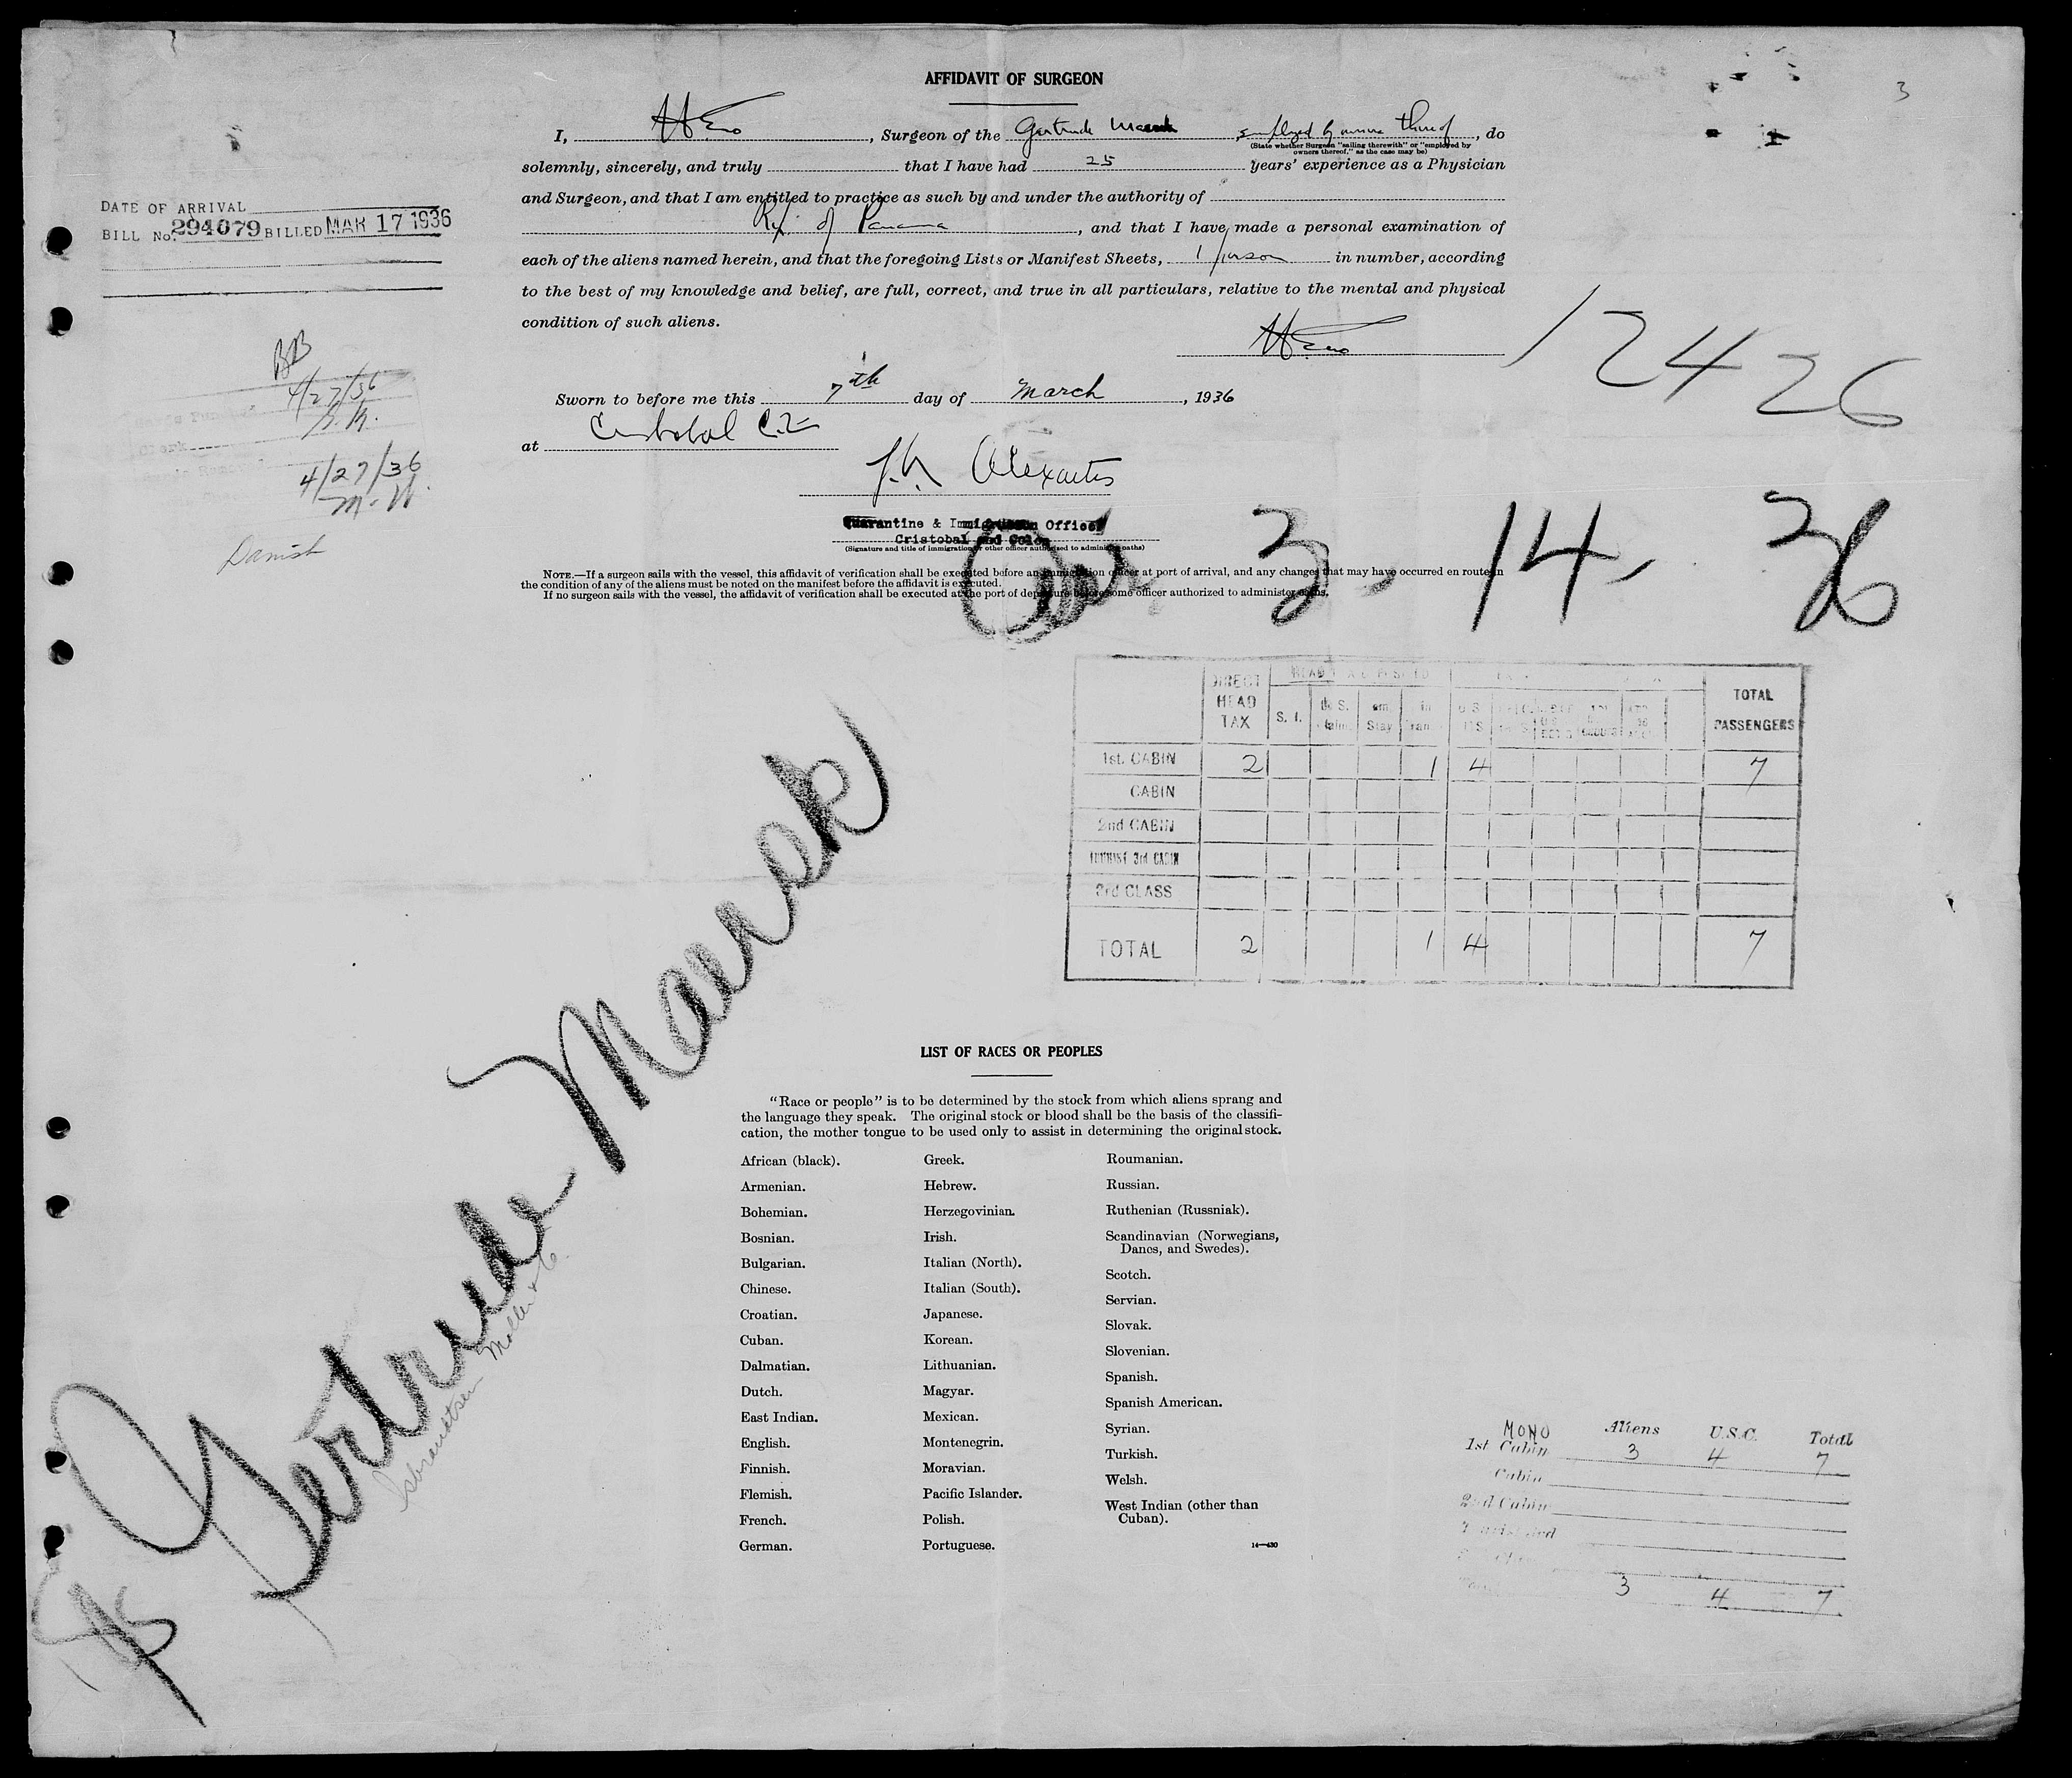 AFFIDAVIT OF SURGEON
3
I, , Surgeon of the Gertrude Maersk, employed by owners thereof, do
(State whether Surgeon "sailing therewith" or "employed by owners thereof," as the case may be)
solemnly, sincerely, and truly that I have had 25 years' experience as a Physician
and Surgeon, and that I am entitled to practice as such by and under the authority of
Rep. of Panama, and that I have made a personal examination of
each of the aliens named herein, and that the foregoing Lists or Manifest Sheets, 1 person in number, according
to the best of my knowledge and belief, are full, correct, and true in all particulars, relative to the mental and physical
condition of such aliens.
DATE OF ARRIVAL
BILL No. 294079 BILLED MAR 17 1936
BB
4/27/36
Clerk
4/27/36
M.W.
Danish
12426
Sworn to before me this 7th day of March, 1936
at Cristobal C.Z.
Quarantine & Immigration Officer
Cristobal and Colon
(Signature and title of immigration or other officer authorized to administer oaths)
3. 14. 36
NOTE.—If a surgeon sails with the vessel, this affidavit of verification shall be executed before an immigration officer at port of arrival, and any changes that may have occurred en route in
the condition of any of the aliens must be noted on the manifest before the affidavit is executed.
If no surgeon sails with the vessel, the affidavit of verification shall be executed at the port of departure before some officer authorized to administer oaths.
DIRECT HEAD TAX S. I. TOTAL PASSENGERS
1st. CABIN 2 1 4 7
CABIN
2nd CABIN
TOURIST 3rd CABIN
3rd CLASS
TOTAL 2 1 4 7
Gertrude Maersk
Isbrandtsen Moller & Co
LIST OF RACES OR PEOPLES
"Race or people" is to be determined by the stock from which aliens sprang and
the language they speak. The original stock or blood shall be the basis of the classifi-
cation, the mother tongue to be used only to assist in determining the original stock.
African (black).
Armenian.
Bohemian.
Bosnian.
Bulgarian.
Chinese.
Croatian.
Cuban.
Dalmatian.
Dutch.
East Indian.
English.
Finnish.
Flemish.
French.
German.
Greek.
Hebrew.
Herzegovinian.
Irish.
Italian (North).
Italian (South).
Japanese.
Korean.
Lithuanian.
Magyar.
Mexican.
Montenegrin.
Moravian.
Pacific Islander.
Polish.
Portuguese.
Roumanian.
Russian.
Ruthenian (Russniak).
Scandinavian (Norwegians,
Danes, and Swedes).
Scotch.
Servian.
Slovak.
Slovenian.
Spanish.
Spanish American.
Syrian.
Turkish.
Welsh.
West Indian (other than
Cuban).
14—430
MONO Aliens U.S.C. Total
1st Cabin 3 4 7
Cabin
2nd Cabin
3 4 7